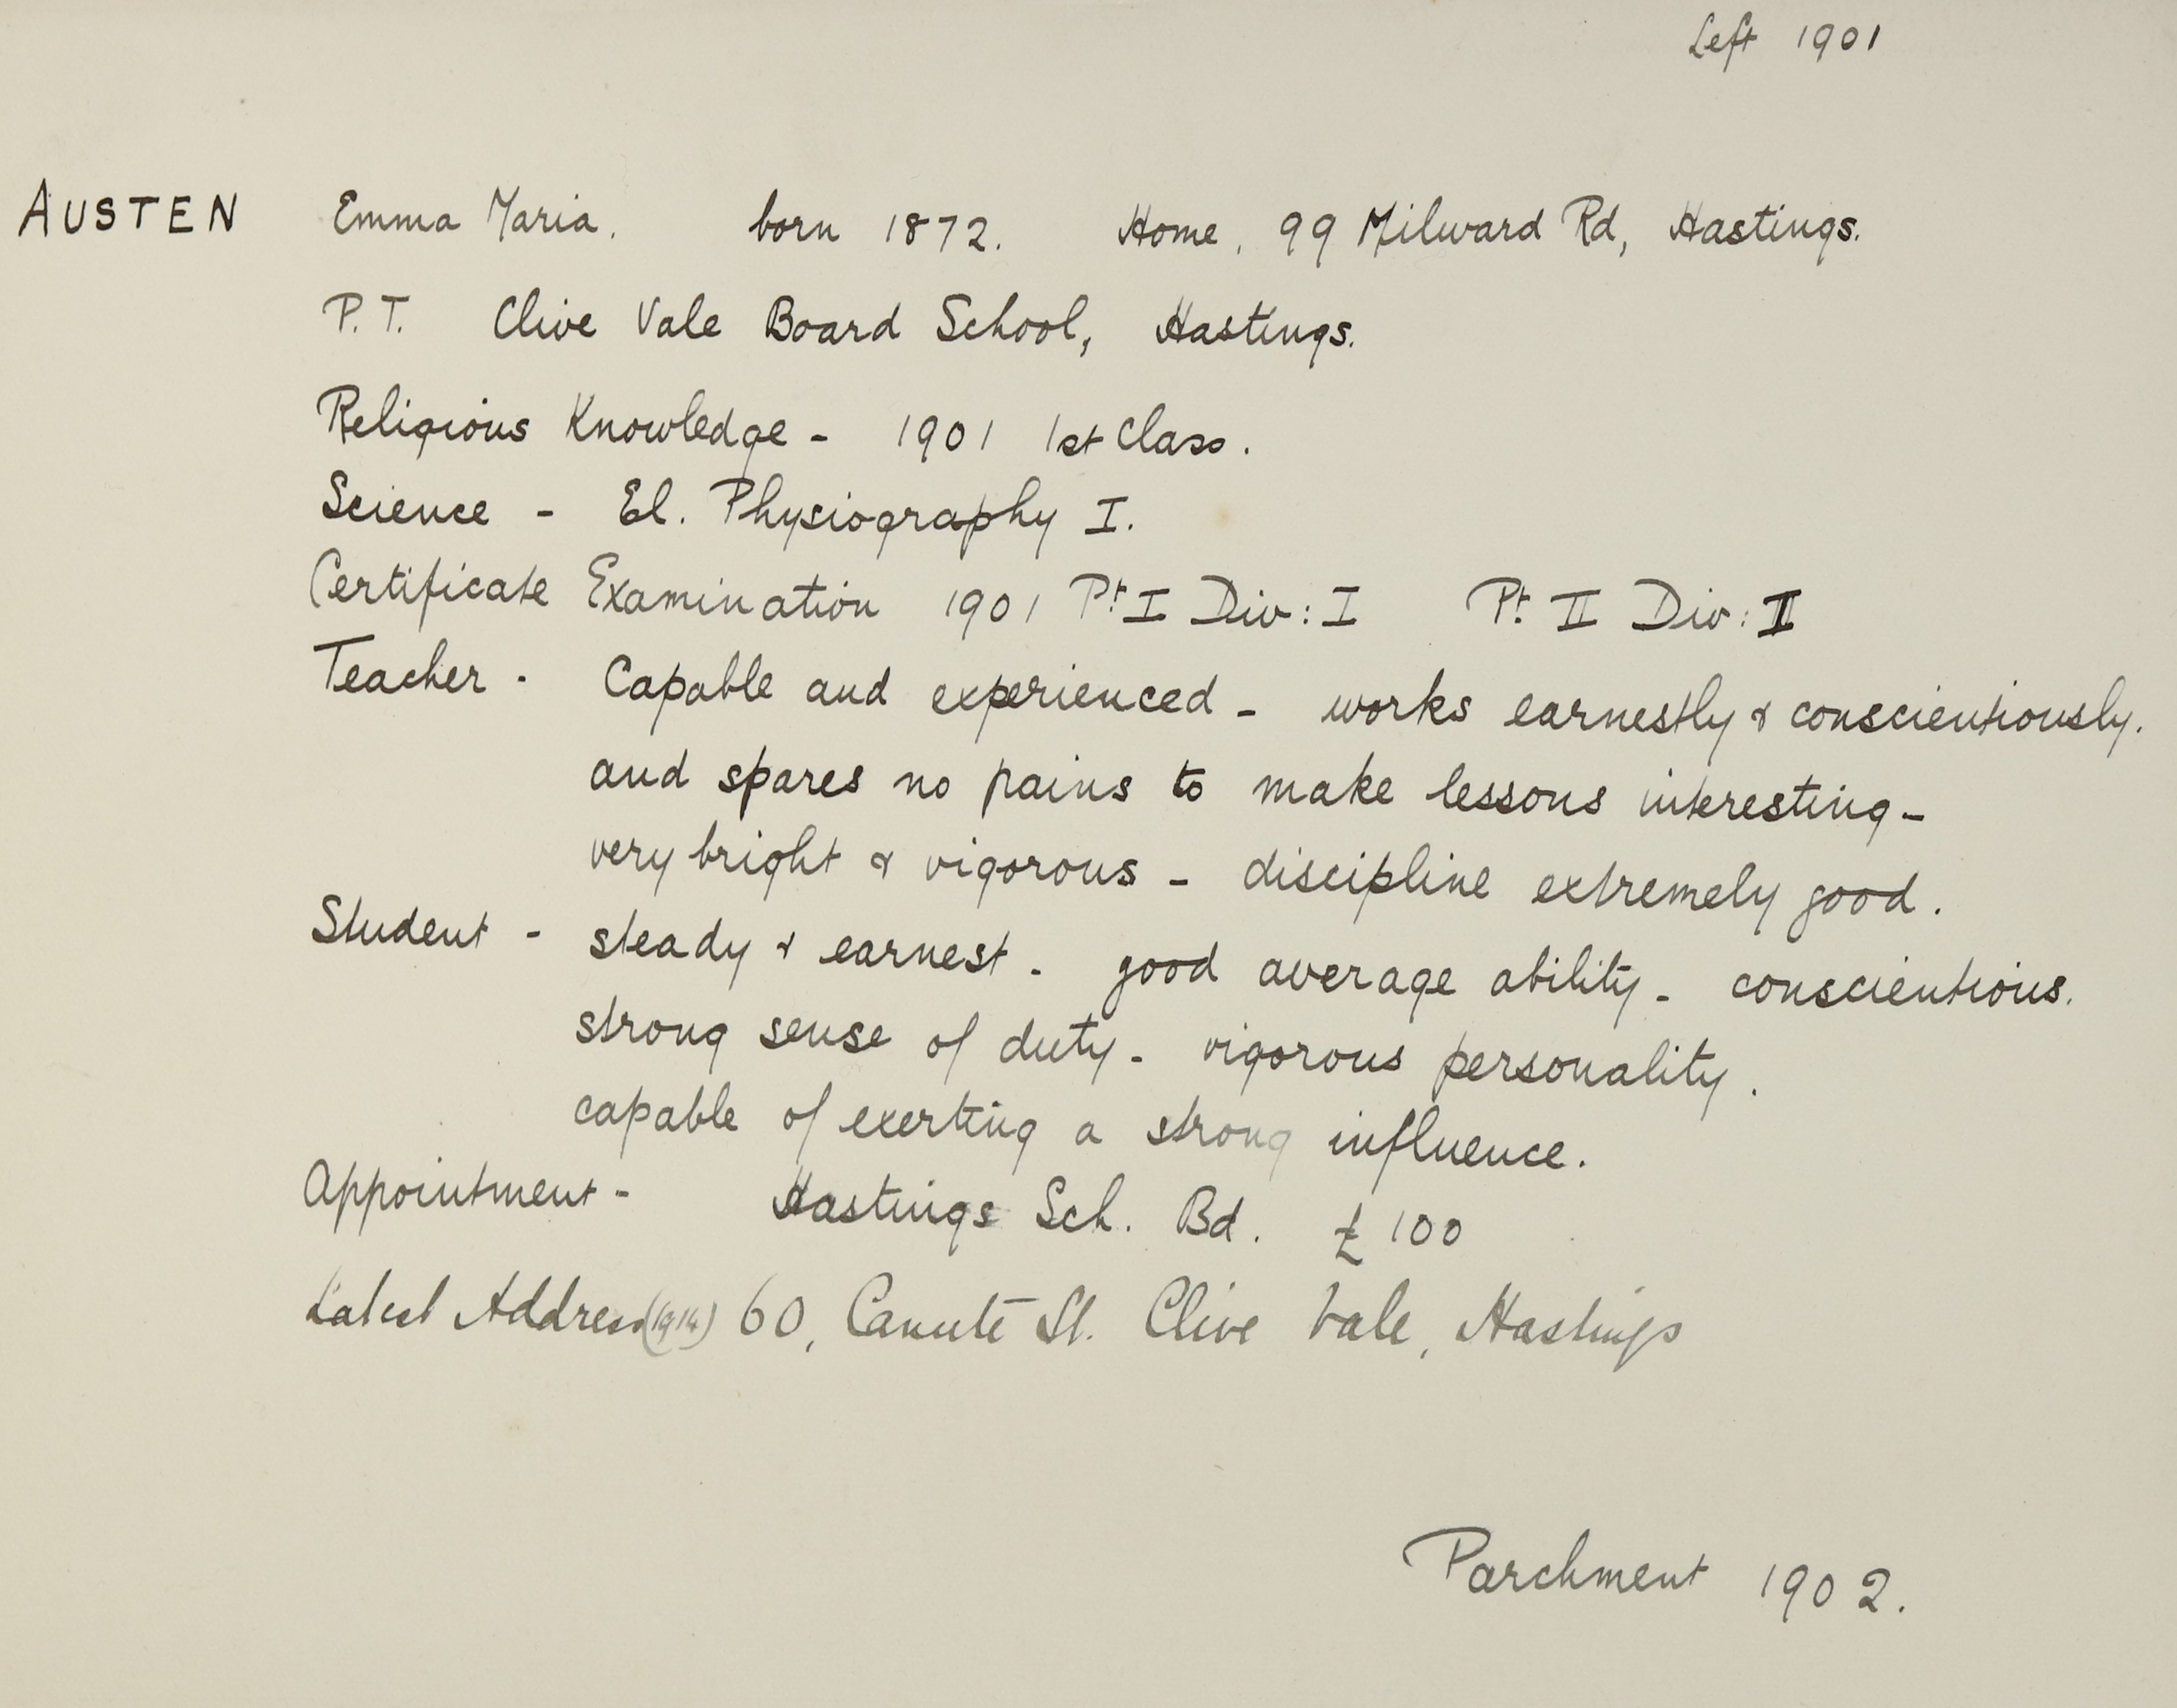 Left 1901
AUSTEN Emma Maria. born 1872. Home, 99 Milward Rd, Hastings.
P.T. Clive Vale Board School, Hastings.
Religious Knowledge - 1901 1st Class.
Science - El. Physiography I.
Certificate Examination 1901 Pt I Div: I Pt. II Div: II
Teacher - Capable and experienced - works earnestly & conscientiously.
and spares no pains to make lessons interesting -
very bright & vigorous - discipline extremely good.
Student - steady & earnest - good average ability - conscientious.
strong sense of duty - vigorous personality.
capable of exerting a strong influence.
Appointment - Hastings Sch. Bd. £100
Latest Address (1914) 60, Canute St. Clive Vale, Hastings
Parchment 1902.